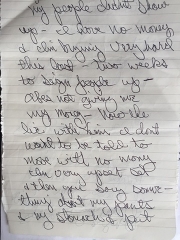 my people didnt show
up - I have no money
I am trying very hard
this last two weeks
to sign people up -
Abes not giving me
my money - Now the
lie with him. I dont
want to be told to
move with no money
I am very upset so
then you say some-
thing about my pants
& my stomach & just